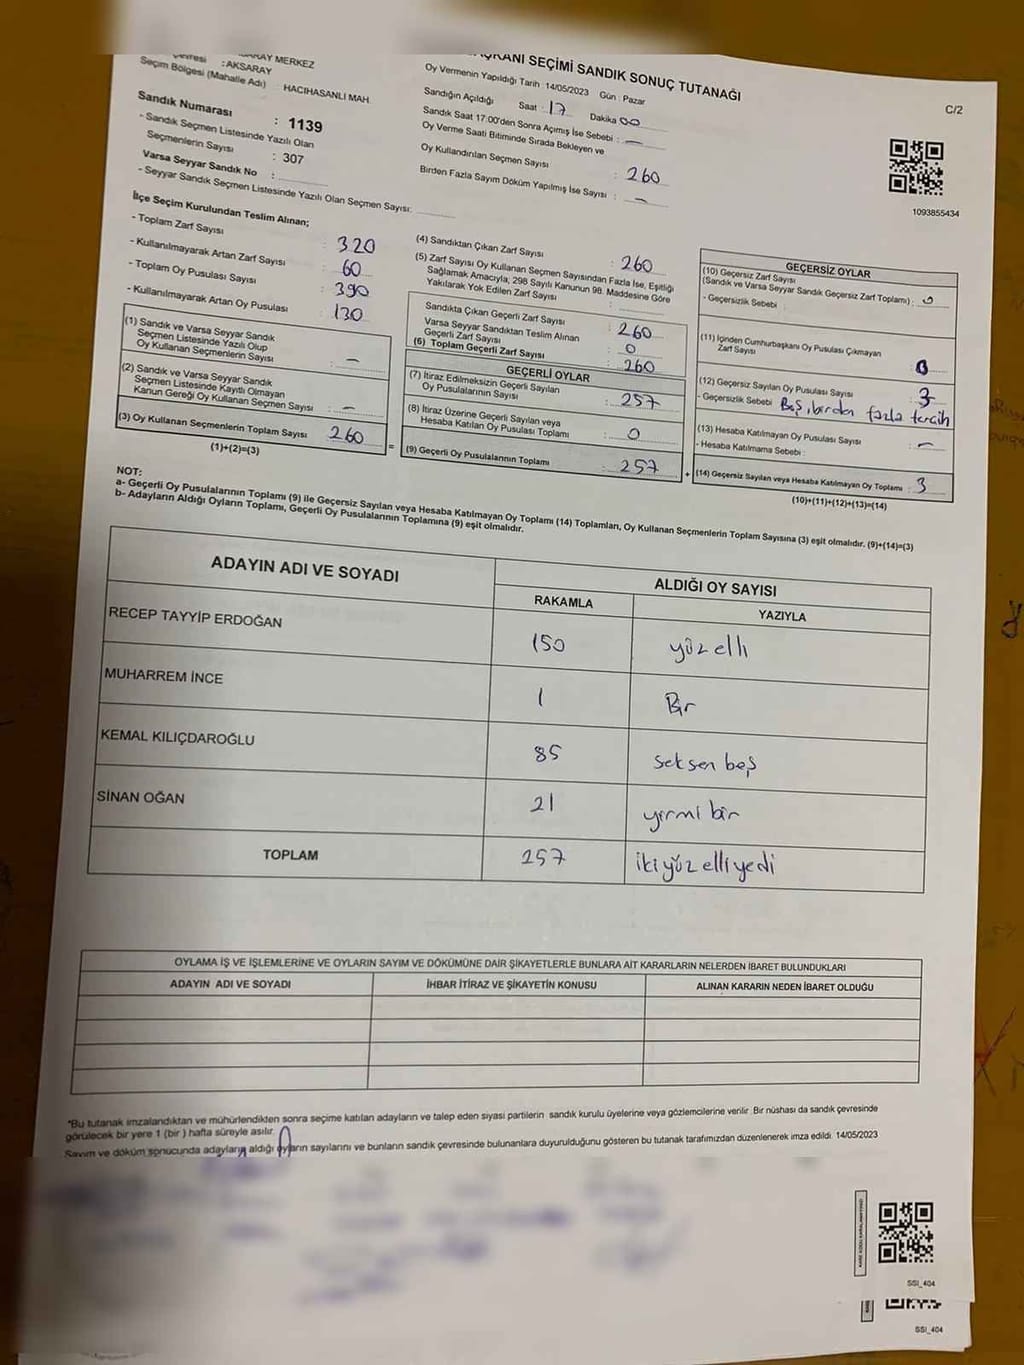 ARAY MERKEZ
Çevresi : AKSARAY
Seçim Bölgesi (Mahalle Adı) HACIHASANLI MAH.
Sandık Numarası : 1139
- Sandık Seçmen Listesinde Yazılı Olan
Seçmenlerin Sayısı : 307
Varsa Seyyar Sandık No :
- Seyyar Sandık Seçmen Listesinde Yazılı Olan Seçmen Sayısı:
SEÇİMİ SANDIK SONUÇ TUTANAĞI
Oy Vermenin Yapıldığı Tarih : 14/05/2023 Gün : Pazar
Sandığın Açıldığı Saat : 17 Dakika 00
Sandık Saat 17:00'den Sonra Açımış İse Sebebi : —
Oy Verme Saati Bitiminde Sırada Bekleyen ve
Oy Kullandırılan Seçmen Sayısı : 260
Birden Fazla Sayım Döküm Yapılmış İse Sayısı : —
C/2
1093855434
İlçe Seçim Kurulundan Teslim Alınan;
- Toplam Zarf Sayısı : 320
- Kullanılmayarak Artan Zarf Sayısı : 60
- Toplam Oy Pusulası Sayısı : 390
- Kullanılmayarak Artan Oy Pusulası : 130
(1) Sandık ve Varsa Seyyar Sandık
Seçmen Listesinde Yazılı Olup
Oy Kullanan Seçmenlerin Sayısı : —
(2) Sandık ve Varsa Seyyar Sandık
Seçmen Listesinde Kayıtlı Olmayan
Kanun Gereği Oy Kullanan Seçmen Sayısı : —
(3) Oy Kullanan Seçmenlerin Toplam Sayısı 260
(1)+(2)=(3)
(4) Sandıktan Çıkan Zarf Sayısı : 260
(5) Zarf Sayısı Oy Kullanan Seçmen Sayısından Fazla İse, Eşitliği
Sağlamak Amacıyla, 298 Sayılı Kanunun 98. Maddesine Göre
Yakılarak Yok Edilen Zarf Sayısı :
Sandıkta Çıkan Geçerli Zarf Sayısı : 260
Varsa Seyyar Sandıktan Teslim Alınan
Geçerli Zarf Sayısı : 0
(6) Toplam Geçerli Zarf Sayısı : 260
GEÇERLİ OYLAR
(7) İtiraz Edilmeksizin Geçerli Sayılan
Oy Pusulalarının Sayısı : 257
(8) İtiraz Üzerine Geçerli Sayılan veya
Hesaba Katılan Oy Pusulası Toplamı : 0
= (9) Geçerli Oy Pusulalarının Toplamı : 257
GEÇERSİZ OYLAR
(10) Geçersiz Zarf Sayısı
(Sandık ve Varsa Seyyar Sandık Geçersiz Zarf Toplamı) : 0
- Geçersizlik Sebebi :
(11) İçinden Cumhurbaşkanı Oy Pusulası Çıkmayan
Zarf Sayısı : 0
(12) Geçersiz Sayılan Oy Pusulası Sayısı : 3
- Geçersizlik Sebebi Boş, birden fazla tercih
(13) Hesaba Katılmayan Oy Pusulası Sayısı : —
- Hesaba Katılmama Sebebi :
+ (14) Geçersiz Sayılan veya Hesaba Katılmayan Oy Toplamı : 3
(10)+(11)+(12)+(13)=(14)
NOT:
a- Geçerli Oy Pusulalarının Toplamı (9) ile Geçersiz Sayılan veya Hesaba Katılmayan Oy Toplamı (14) Toplamları, Oy Kullanan Seçmenlerin Toplam Sayısına (3) eşit olmalıdır. (9)+(14)=(3)
b- Adayların Aldığı Oyların Toplamı, Geçerli Oy Pusulalarının Toplamına (9) eşit olmalıdır.
ADAYIN ADI VE SOYADI ALDIĞI OY SAYISI
RAKAMLA YAZIYLA
RECEP TAYYİP ERDOĞAN 150 yüz elli
MUHARREM İNCE 1 Bir
KEMAL KILIÇDAROĞLU 85 seksen beş
SİNAN OĞAN 21 yirmi bir
TOPLAM 257 iki yüz elli yedi
OYLAMA İŞ VE İŞLEMLERİNE VE OYLARIN SAYIM VE DÖKÜMÜNE DAİR ŞİKAYETLERLE BUNLARA AİT KARARLARIN NELERDEN İBARET BULUNDUKLARI
ADAYIN ADI VE SOYADI İHBAR İTİRAZ VE ŞİKAYETİN KONUSU ALINAN KARARIN NEDEN İBARET OLDUĞU
"Bu tutanak imzalandıktan ve mühürlendikten sonra seçime katılan adayların ve talep eden siyasi partilerin sandık kurulu üyelerine veya gözlemcilerine verilir. Bir nüshası da sandık çevresinde
görülecek bir yere 1 (bir ) hafta süreyle asılır.
Sayım ve döküm sonucunda adayların aldığı oyların sayılarını ve bunların sandık çevresinde bulunanlara duyurulduğunu gösteren bu tutanak tarafımızdan düzenlenerek imza edildi. 14/05/2023
SSI_404
SSI_404